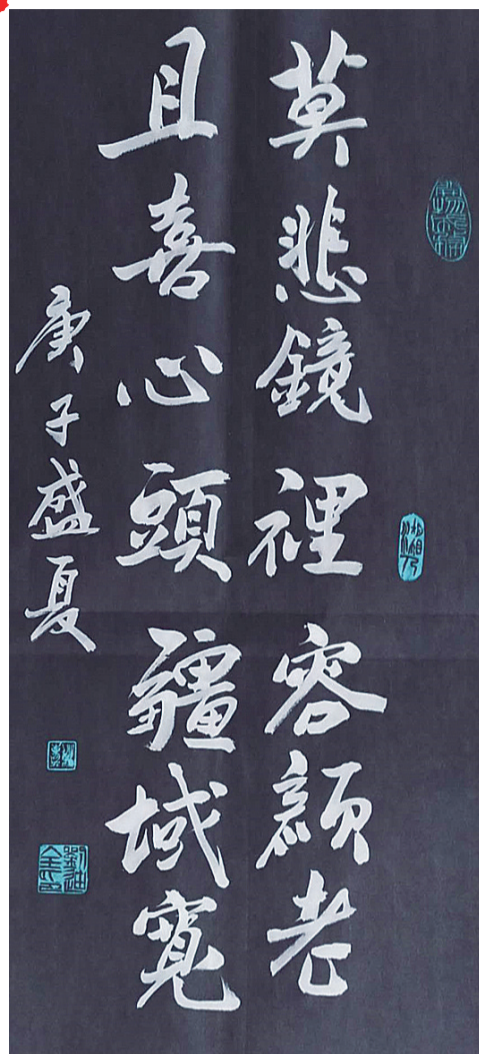 莫悲鏡裡容顏老
且喜心頭疆域寬
庚子盛夏